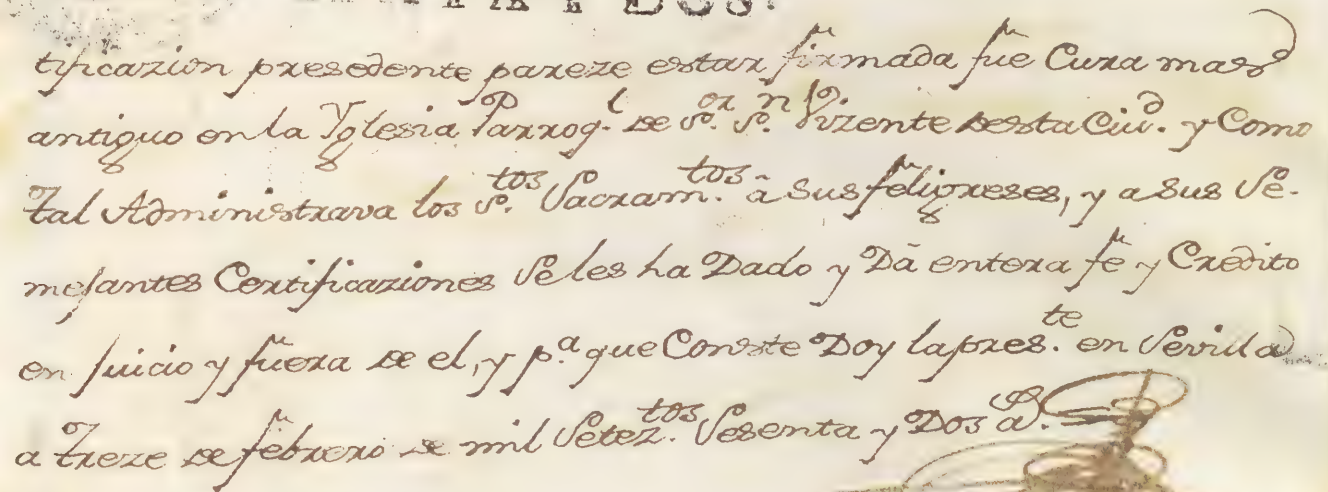 TA Y DOS.
tificazion presedente pareze estar firmada fue Cura mas
antiguo en la Yglesia Parrog.l de S.or S.n Vizente desta Ciu.d y Como
tal Administrava los S.tos Sacram.tos â sus feligreses, y a Sus Se-
mejantes Certificaziones Se les ha Dado y Dâ entera fe y Credito
en juicio y fuera de el, y p.a que Conste Doy la pres.te en Sevilla
a treze de febrero de mil Setez.tos Sesenta y Dos a.s